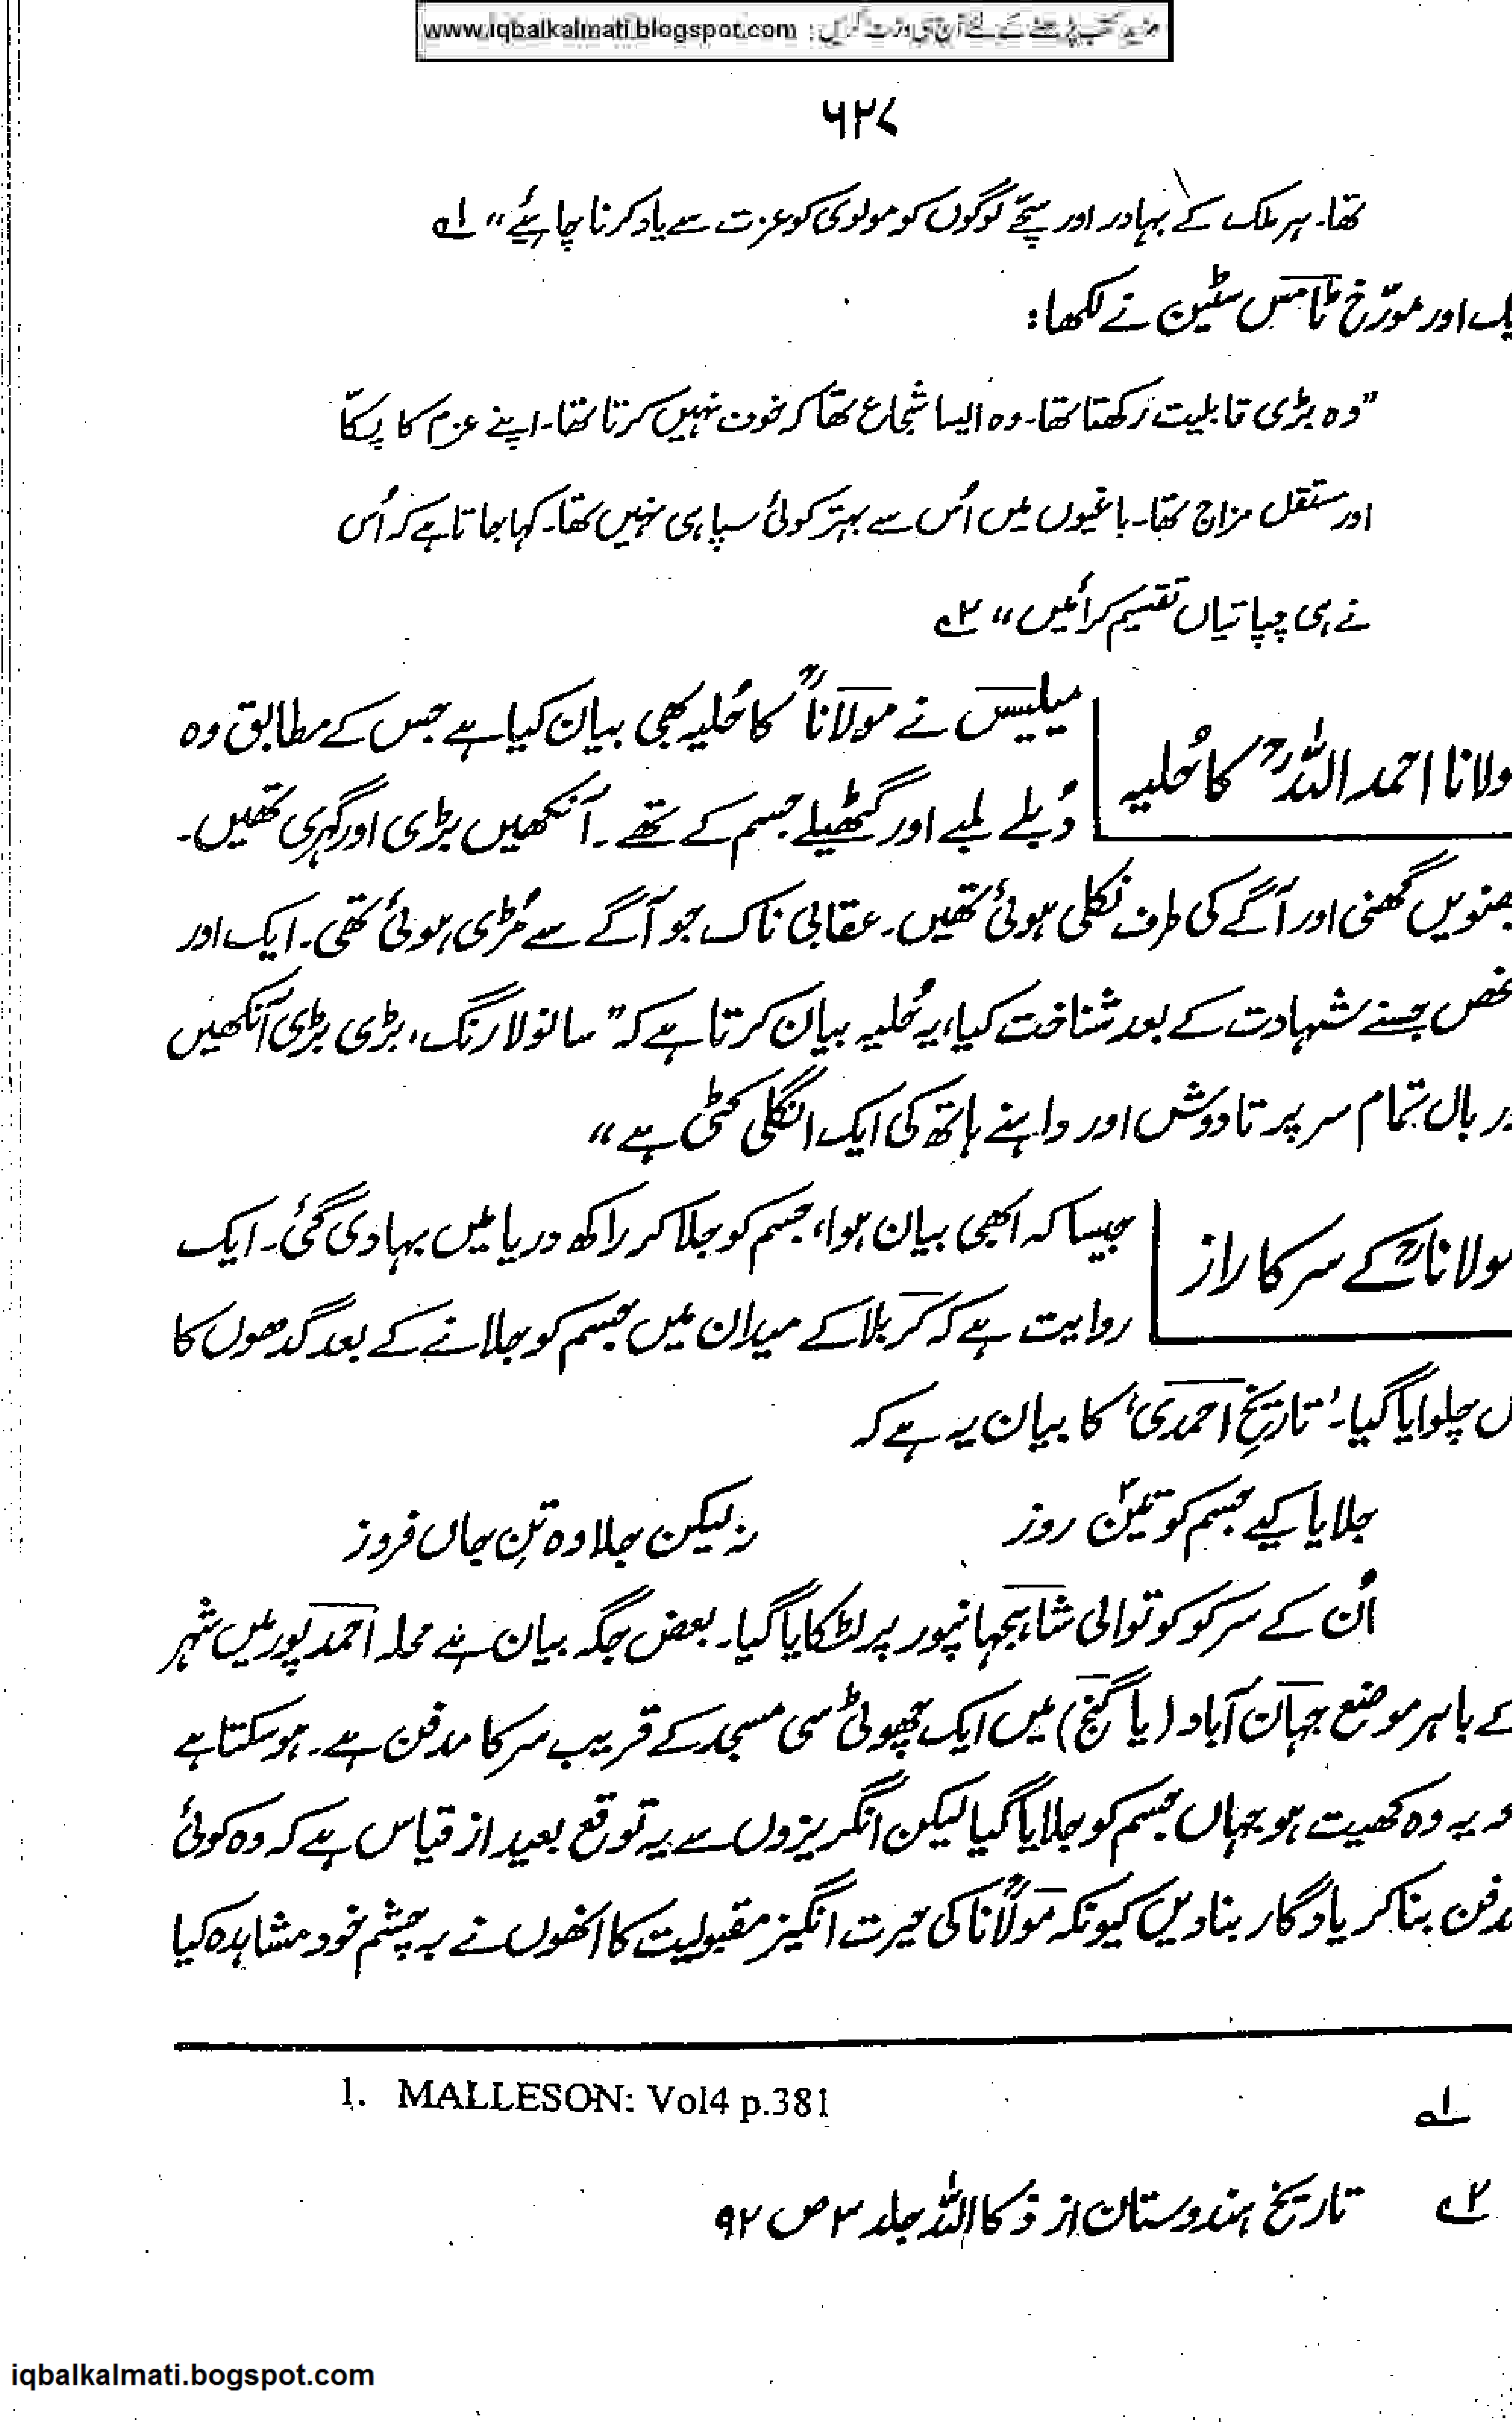 مزید کتب پڑھنے کے لئے آج ہی وزٹ کریں : www.iqbalkalmati.blogspot.com
۶۲۷
تھا۔ ہر ملک کے بہادر اور سچّے لوگوں کو مولوی کو عزت سے یاد کرنا چاہئیے" ۱ہ
اور مورّخ ٹامس سٹین نے لکھا:
"وہ بڑی قابلیت رکھتا تھا۔ وہ ایسا شجاع تھا کہ خوف نہیں کرتا تھا۔ اپنے عزم کا پکّا
اور مستقل مزاج تھا۔ باغیوں میں اُس سے بہتر کوئی سپاہی نہیں تھا۔ کہا جاتا ہے کہ اُس
نے ہی چپاتیاں تقسیم کرائیں" ۲ے
ولانا احمد اللہؒ کا حُلیہ
میلیسن نے مولاناؒ کا حُلیہ بھی بیان کیا ہے جس کے مطابق وہ
دُبلے لمبے اور گٹھیلے جسم کے تھے۔ آنکھیں بڑی اور گہری تھیں۔
ھنویں گھنی اور آگے کی طرف نکلی ہوئی تھیں۔ عقابی ناک جو آگے سے مُڑی ہوئی تھی۔ ایک اور
خص جسنے شہادت کے بعد شناخت کیا، یہ حُلیہ بیان کرتا ہے کہ "سانولا رنگ، بڑی بڑی آنکھیں
ور بال تمام سر پر تا دوش اور داہنے ہاتھ کی ایک انگلی کٹی ہے"
مولاناؒ کے سر کا راز
جیسا کہ ابھی بیان ہوا، جسم کو جلا کر راکھ دریا میں بہا دی گئی۔ ایک
روایت ہے کہ کربلا کے میدان میں جسم کو جلانے کے بعد گدھوں کا
ل چلوایا گیا۔ 'تاریخِ احمدی' کا بیان یہ ہے کہ
جلایا کیے جسم کو تین۳ روز نہ لیکن جلا وہ تنِ جاں فروز
اُن کے سر کو کوتوالی شاہجہانپور پر لٹکایا گیا۔ بعض جگہ بیان ہے محلہ احمد پور میں شہر
کے باہر موضع جہان آباد (یا گنج) میں ایک چھوٹی سی مسجد کے قریب سر کا مدفن ہے۔ ہو سکتا ہے
کہ یہ وہ کھیت ہو جہاں جسم کو جلایا گیا لیکن انگریزوں سے یہ توقع بعید از قیاس ہے کہ وہ کوئی
دفن بنا کر یادگار بنا دیں کیونکہ مولاناؒ کی حیرت انگیز مقبولیت کا انھوں نے بہ چشم خود مشاہدہ کیا
۱ہ 1. MALLESON: Vol4 p.381
۲ے تاریخ ہندوستان از ذکا اللہ جلد ۳ ص ۹۲
iqbalkalmati.bogspot.com